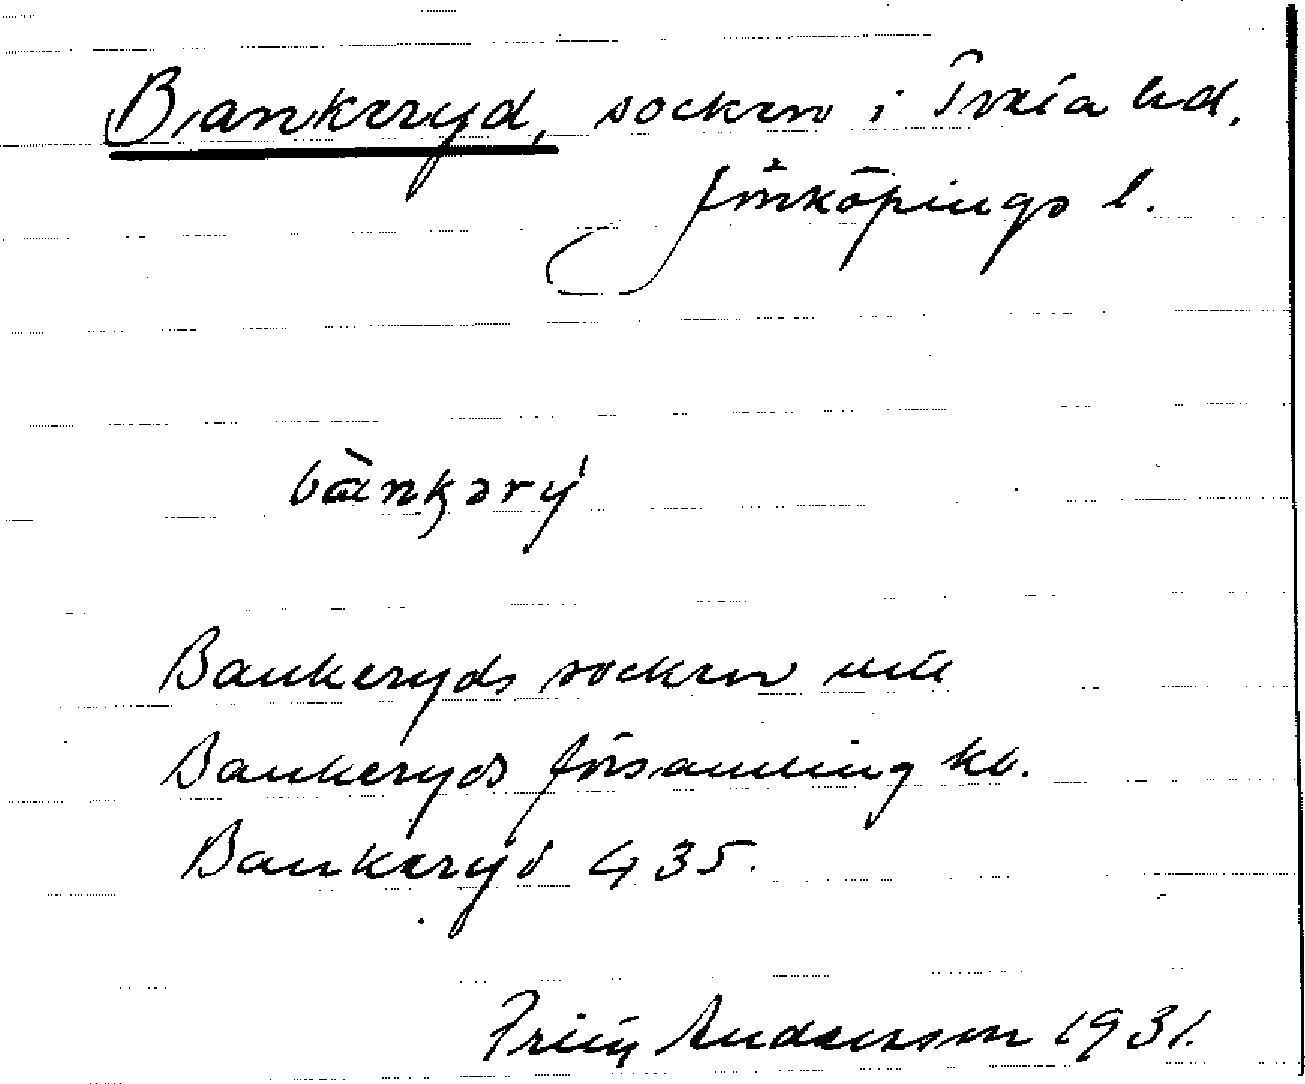 Bankeryd, socken i Tveta hd,
Jönköpings l.
Bankeryds socken
Bankeryds församling kb.
Bankeryd G 35.
Andersson 1931.